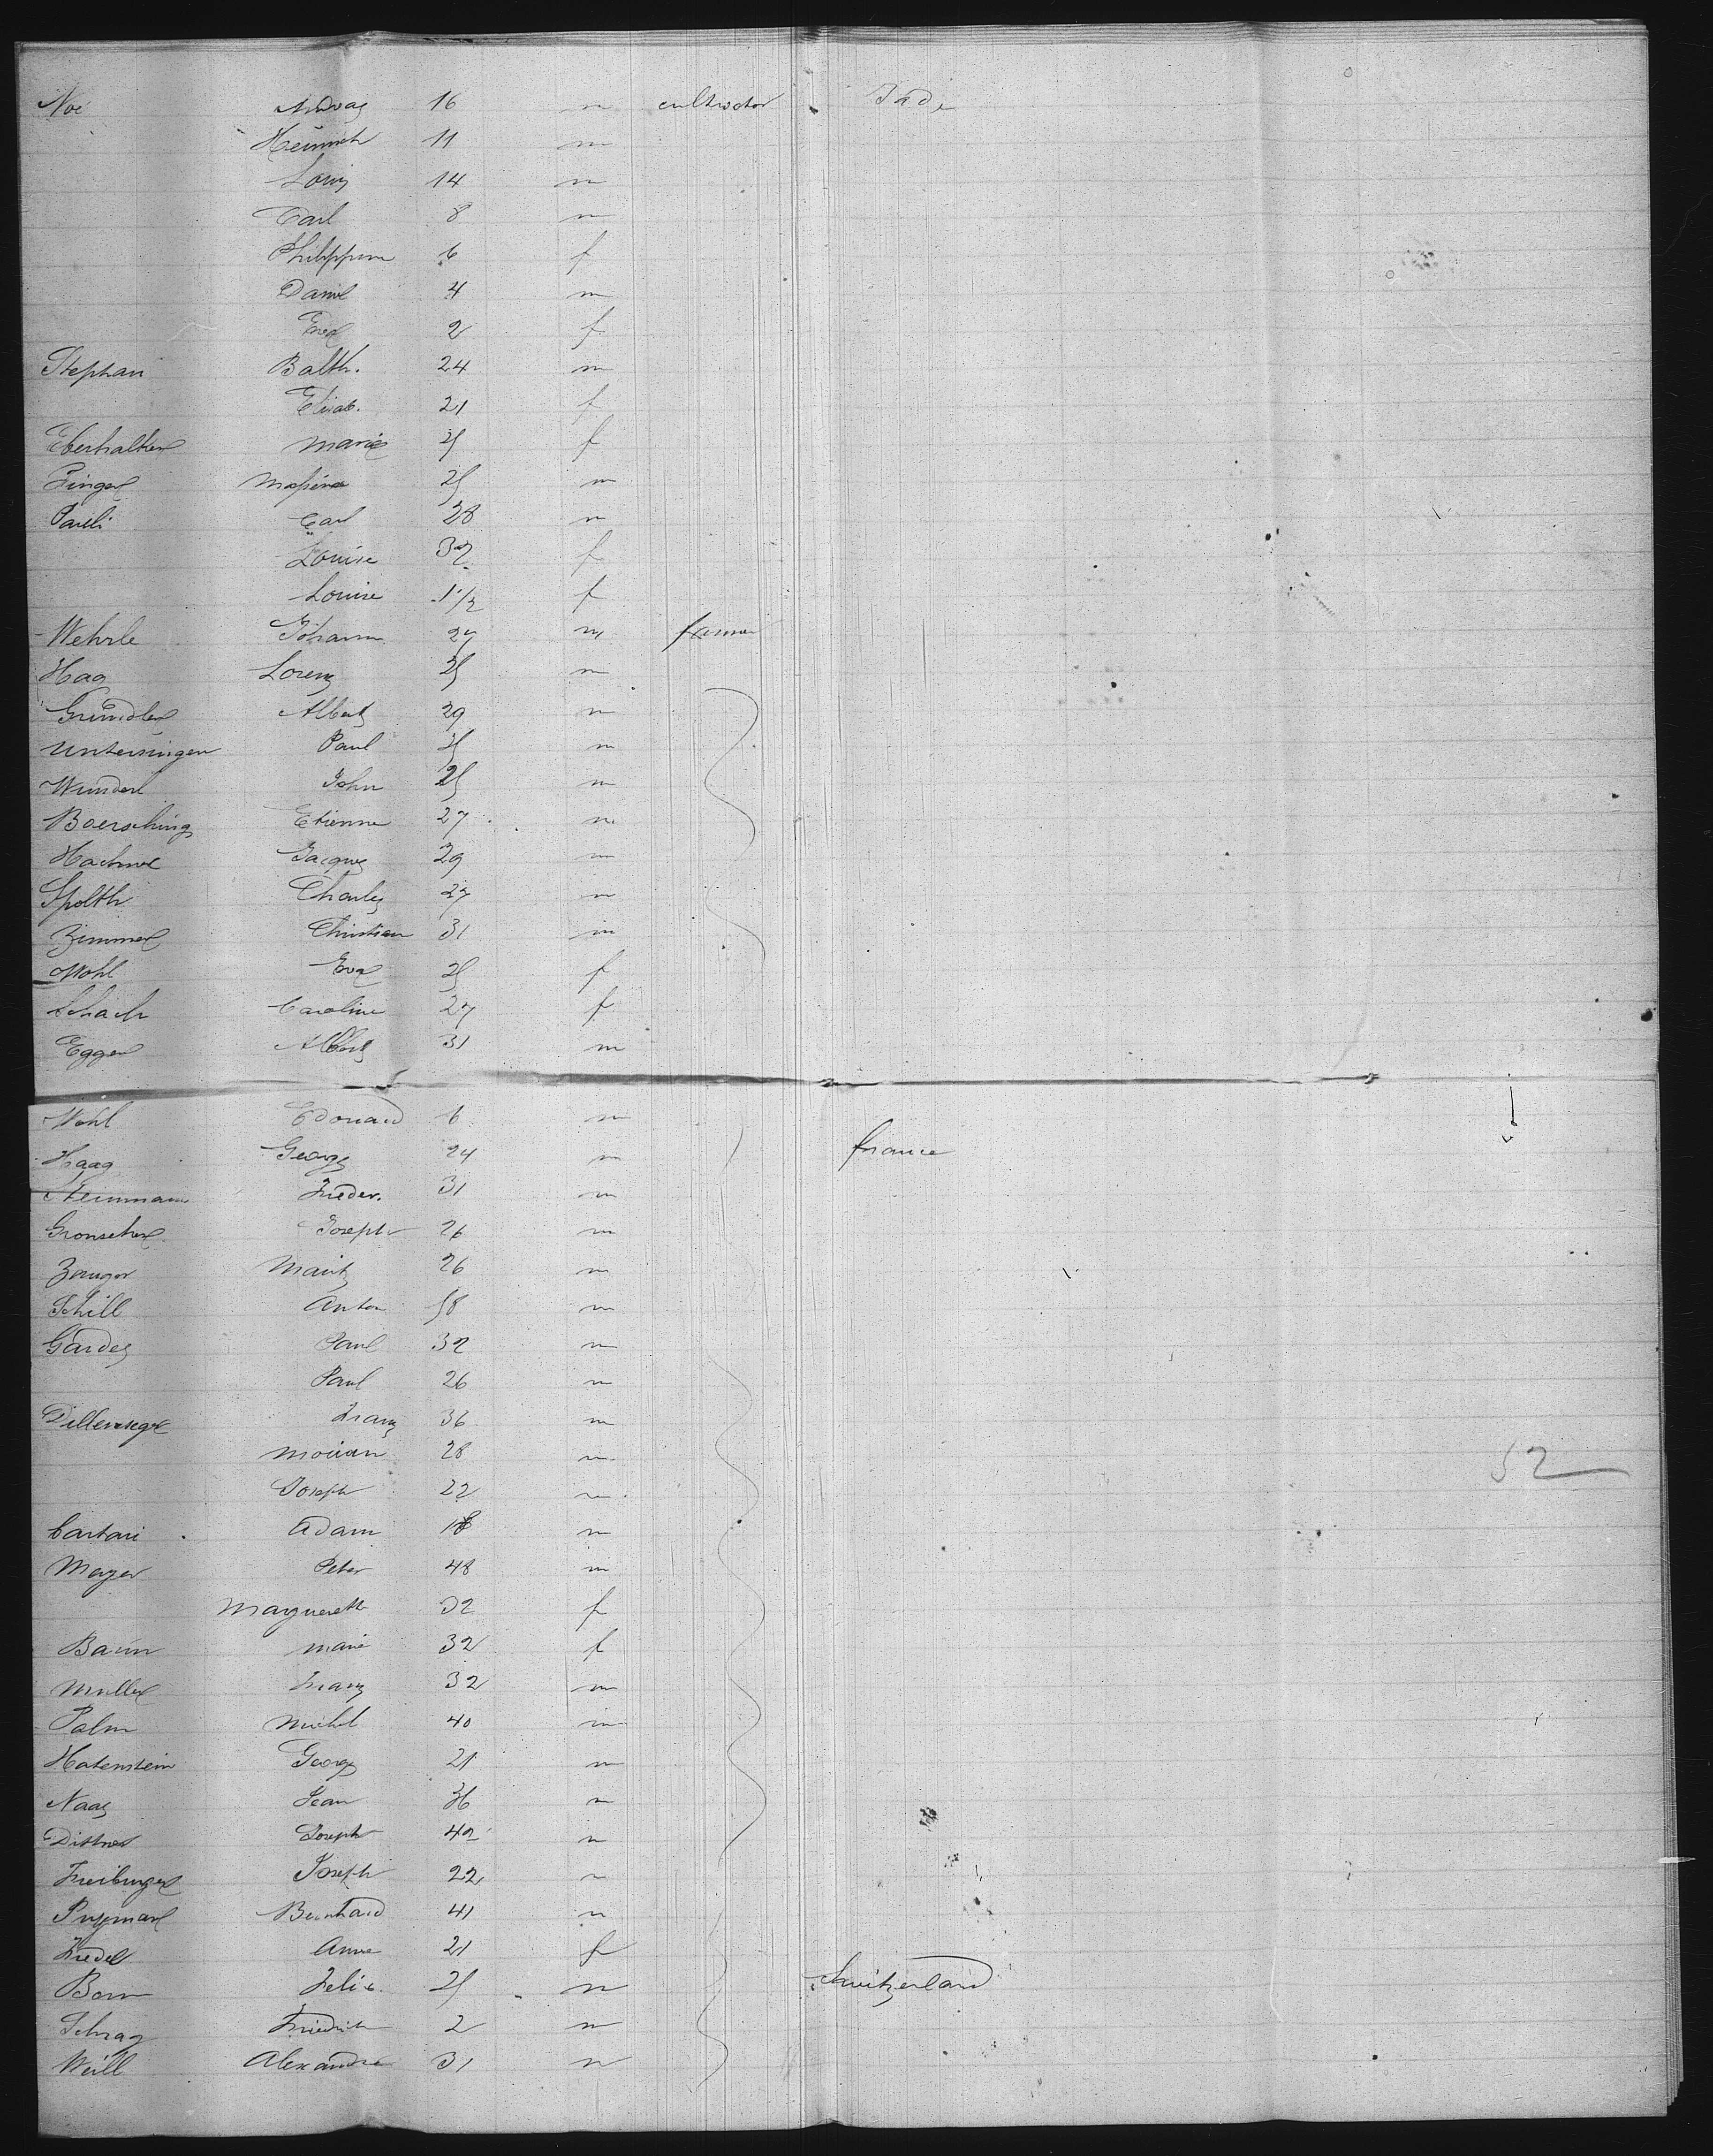 Noé Andreas 16 m cultivator
Heinrich 11 m
Louis 14 m
Carl 8 m
Philippina 6 f
Daniel 4 m
2 f
Stephan Balth. 24 m
Elisab. 21 f
Eberhalter Marie 25 f
Finger 25 m
Pauli Carl 28 m
Louise 32 f
Louise 1 1/2 f
Wehrle Johann 27 m farmer
Hag Lorenz 25 m
Gründler Albert 29 m
Untersingen Paul 25 m
Wunderl John 25 m
Boersching Etienne 27 m
Jacques 29 m
Spolth Charles 27 m
Zimmer Christian 31 m
Wohl Eva 25 f
Schach Caroline 27 f
Egger Albert 31 m
Wohl Edouard 6 m
Haag Georg 24 m france
Steinmann Frieder. 31 m
Joseph 26 m
Zauger Moritz 26 m
Schill Anton 58 m
Gardes Paul 32 m
Paul 26 m
Franz 36 m
28 m
52
Joseph 22 m
Cartari Adam 18 m
Meyer Peter 48 m
Marguereth 32 f
Baum Marie 32 f
Muller Franz 32 m
Palm Michel 40 m
Hatenstein Georg 21 m
Naas Jean 36 m
Dittner Joseph 42 m
Freiburger Joseph 22 m
Bernhard 41 m
Friedel Anna 21 f
Born Felix 25 m Switzerland
Schrag Friedrich 2 m
Weill Alexandre 31 m